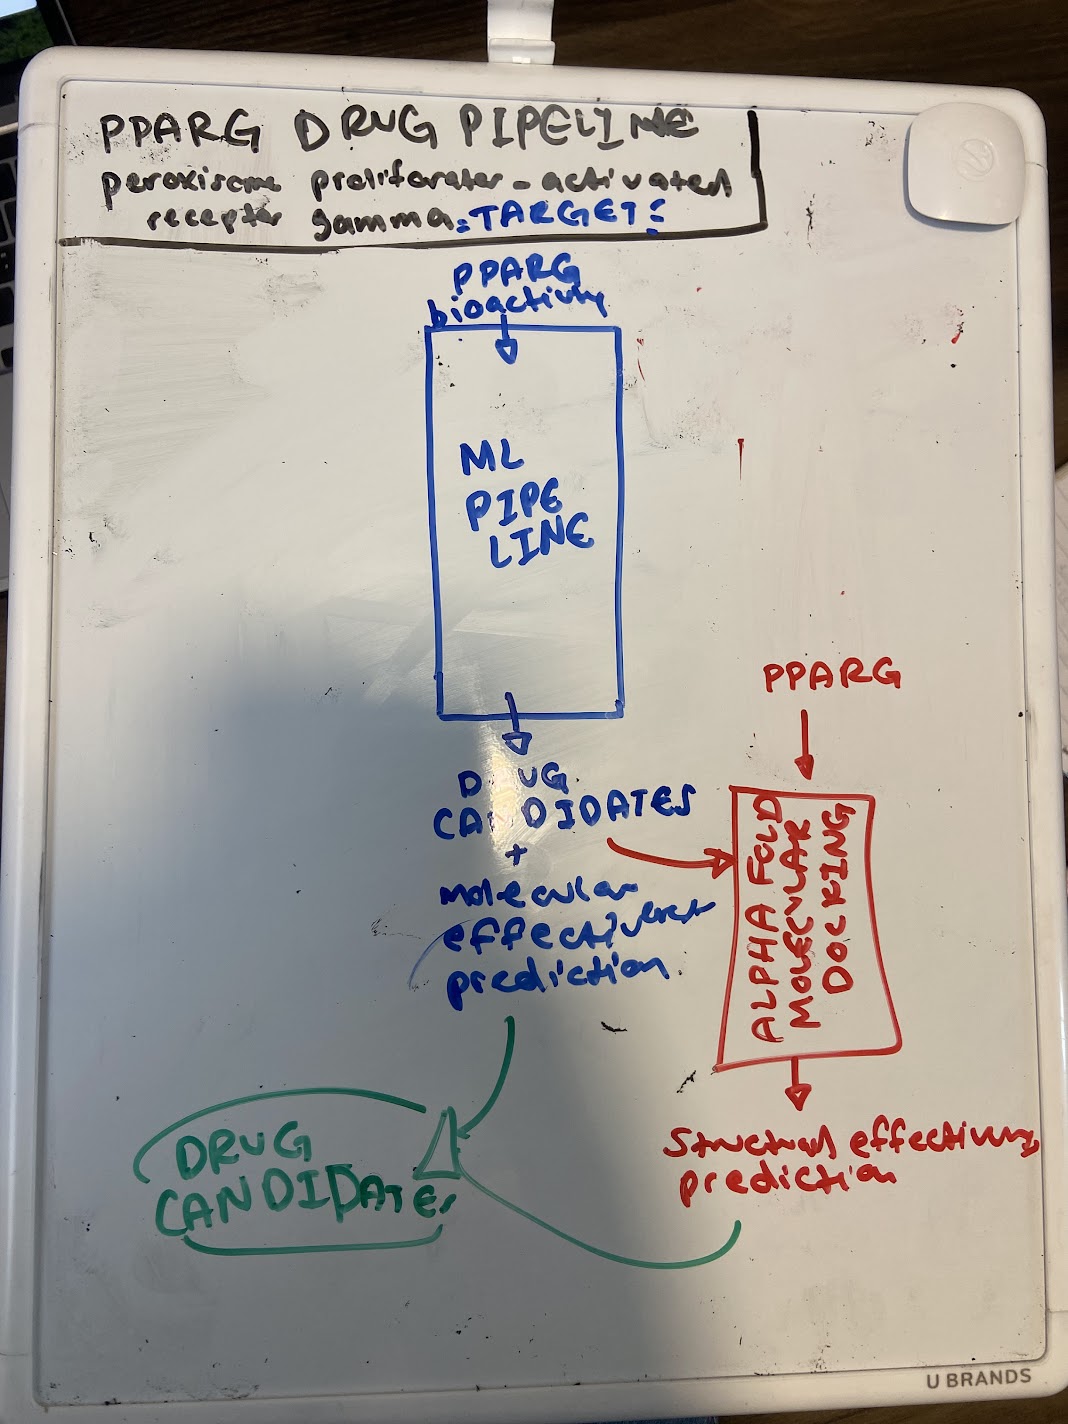 PPARG DRUG PIPELINE
peroxisome proliforater-activated
receptor gamma = TARGET:
PPARG
bioactivity
ML
PIPE
LINE
PPARG
DRUG
CANDIDATES
+
molecular
effectiveness
prediction
ALPHA FOLD
MOLECULAR
DOCKING
Structural effectiveness
prediction
DRUG
CANDIDATES
U BRANDS